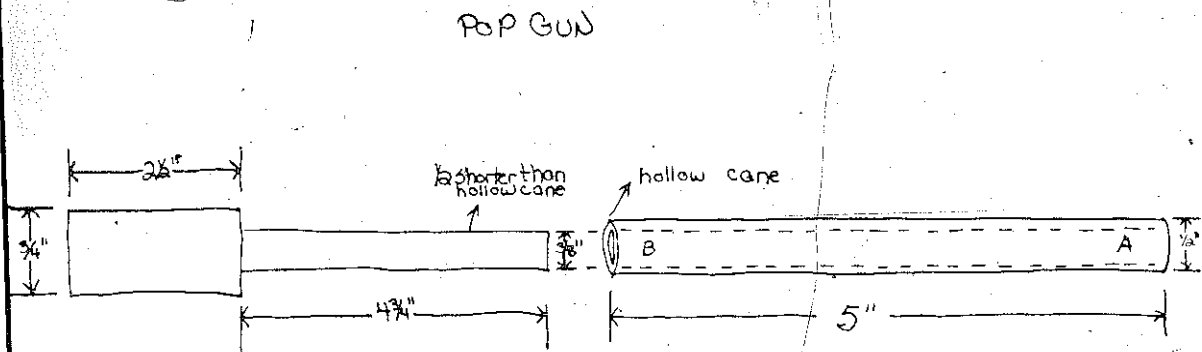 POP GUN
2½"
½ shorter than
hollow cane
hollow cane
¾"
⅜"
B
A
½"
4¾"
5"